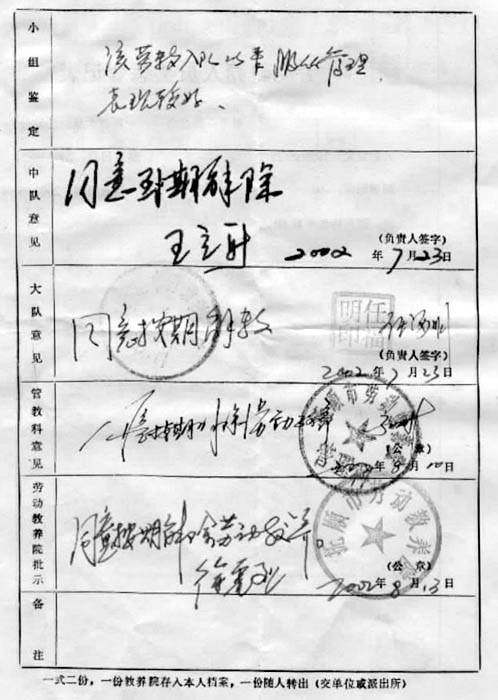 小组鉴定
该劳教入队以来服从管理,
表现较好.
中队意见
同意到期解除
(负责人签字)
2002 年 7 月 23 日
大队意见
同意按期解教
任福明印
(负责人签字)
2002 年 7 月 23 日
管教科意见
同意按期解除劳动教养
(公章)
2002 年 8 月 10 日
劳动教养院批示
同意按期解除劳动教养。
抚顺市劳动教养院
(公章)
2002 年 8 月 13 日
备注
一式二份,一份教养院存入本人档案,一份随人转出(交单位或派出所)